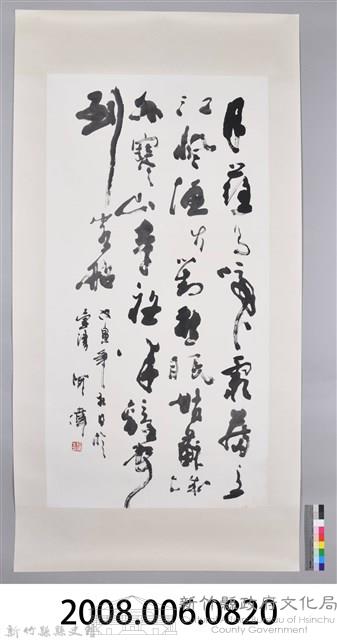 月落烏啼霜滿天
江楓漁火對愁眠姑蘇城
外寒山寺夜半鐘聲
到客船
戊寅年秋日於
新竹縣政府文化局
of Hsinchu
County Government
新竹縣縣史館
2008.006.0820